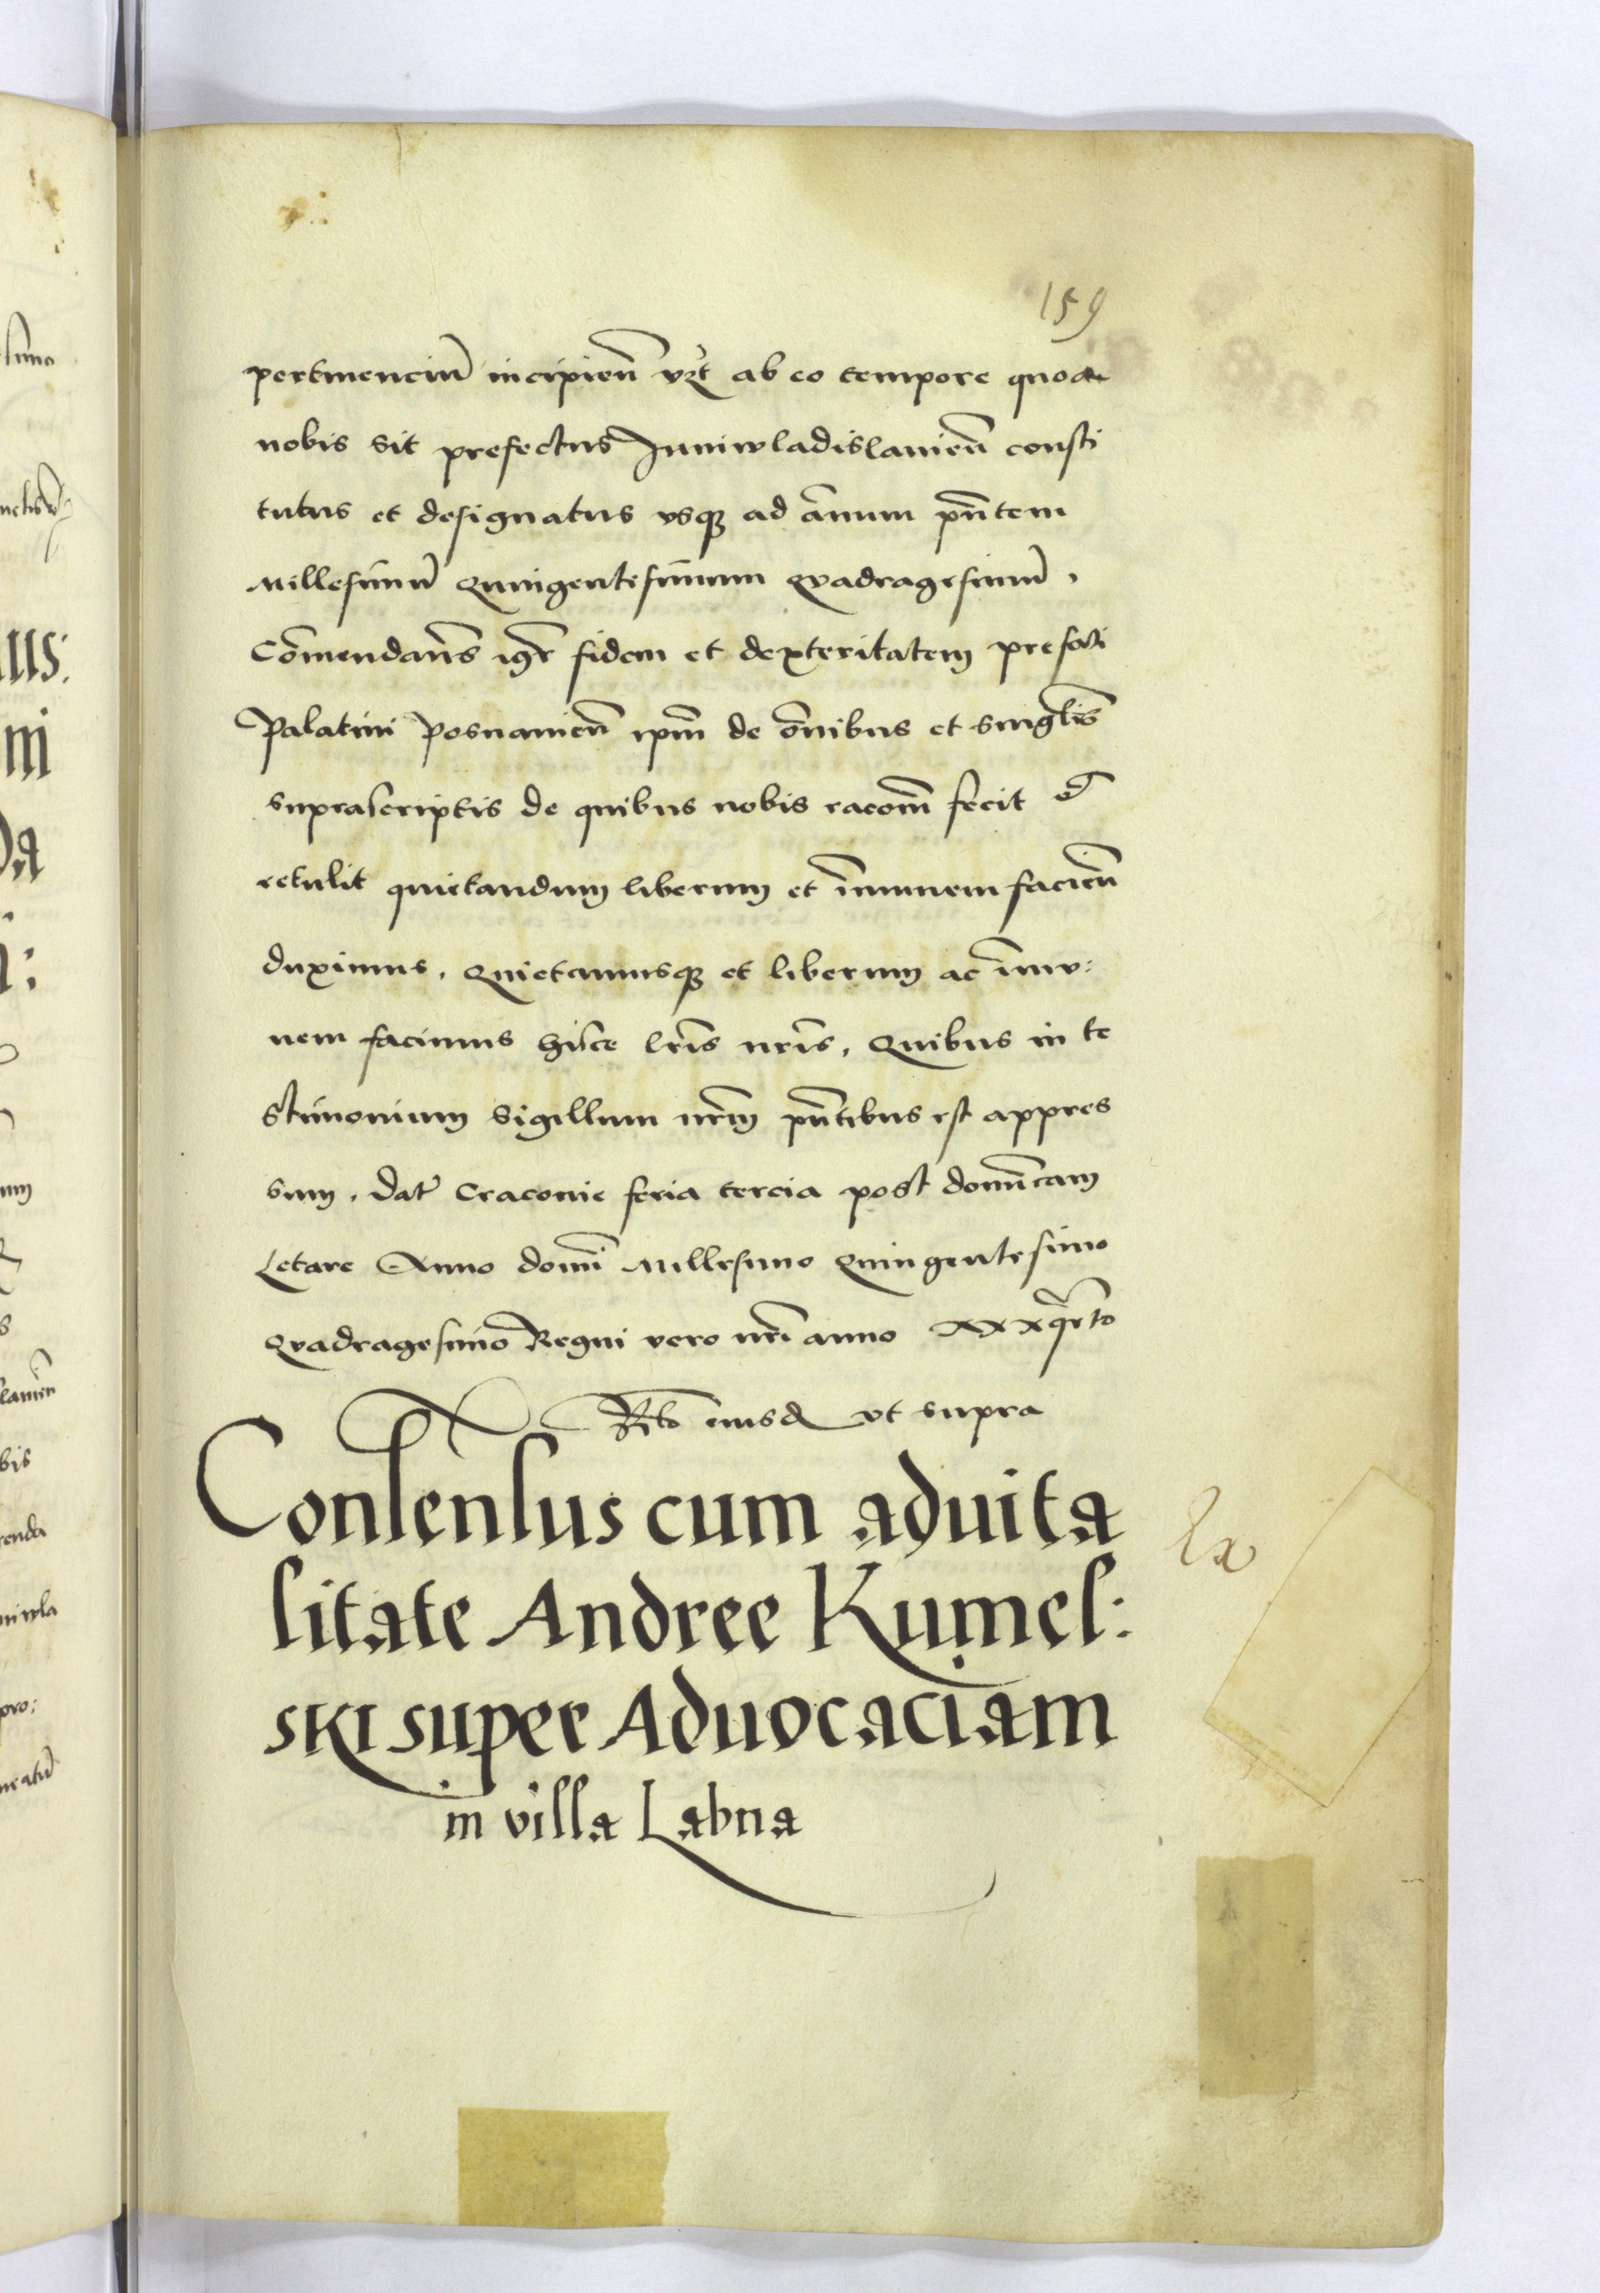 159
pertinenciu͂ incipien͂ vz͂t ab eo tempore quo a
nobis sit prefectus Iuniwladislauien͂ consti
tutus et designatus vsq3 ad a͂num pn͂tem
Millesimu͂ Quingentesimum Qvadragesimu͂,
Co͂mendan͂s igr͂ fidem et dexteritatem prefati
Palatini Posnanien͂ ip͂m de o͂nibus et singl͂is
suprascriptis de quibus nobis raco͂m fecit et
retulit quietandum liberum et i͂munem facien͂
duximus, Quietamusq3 et liberum ac i͂mv:
nem facimus hisce lr͂is nr͂is, Quibus in te
stimonium Sigillum nr͂m pn͂tibus est appres
sum, dat͂ Cracovie feria tercia post domi͂cam
Letare Anno domi͂ Millesimo Quingentesimo
Qvadragesimo Regni vero nr͂i anno xxxqr͂to
Rl͂o eiusd ut supra
Consensus cum aduita
litate Andree Kumel:
ski super Aduocaciam
in villa Labna
Ex